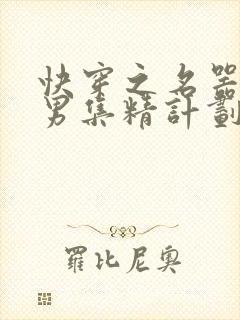 快穿之名器
男集精計劃
羅比尼奧